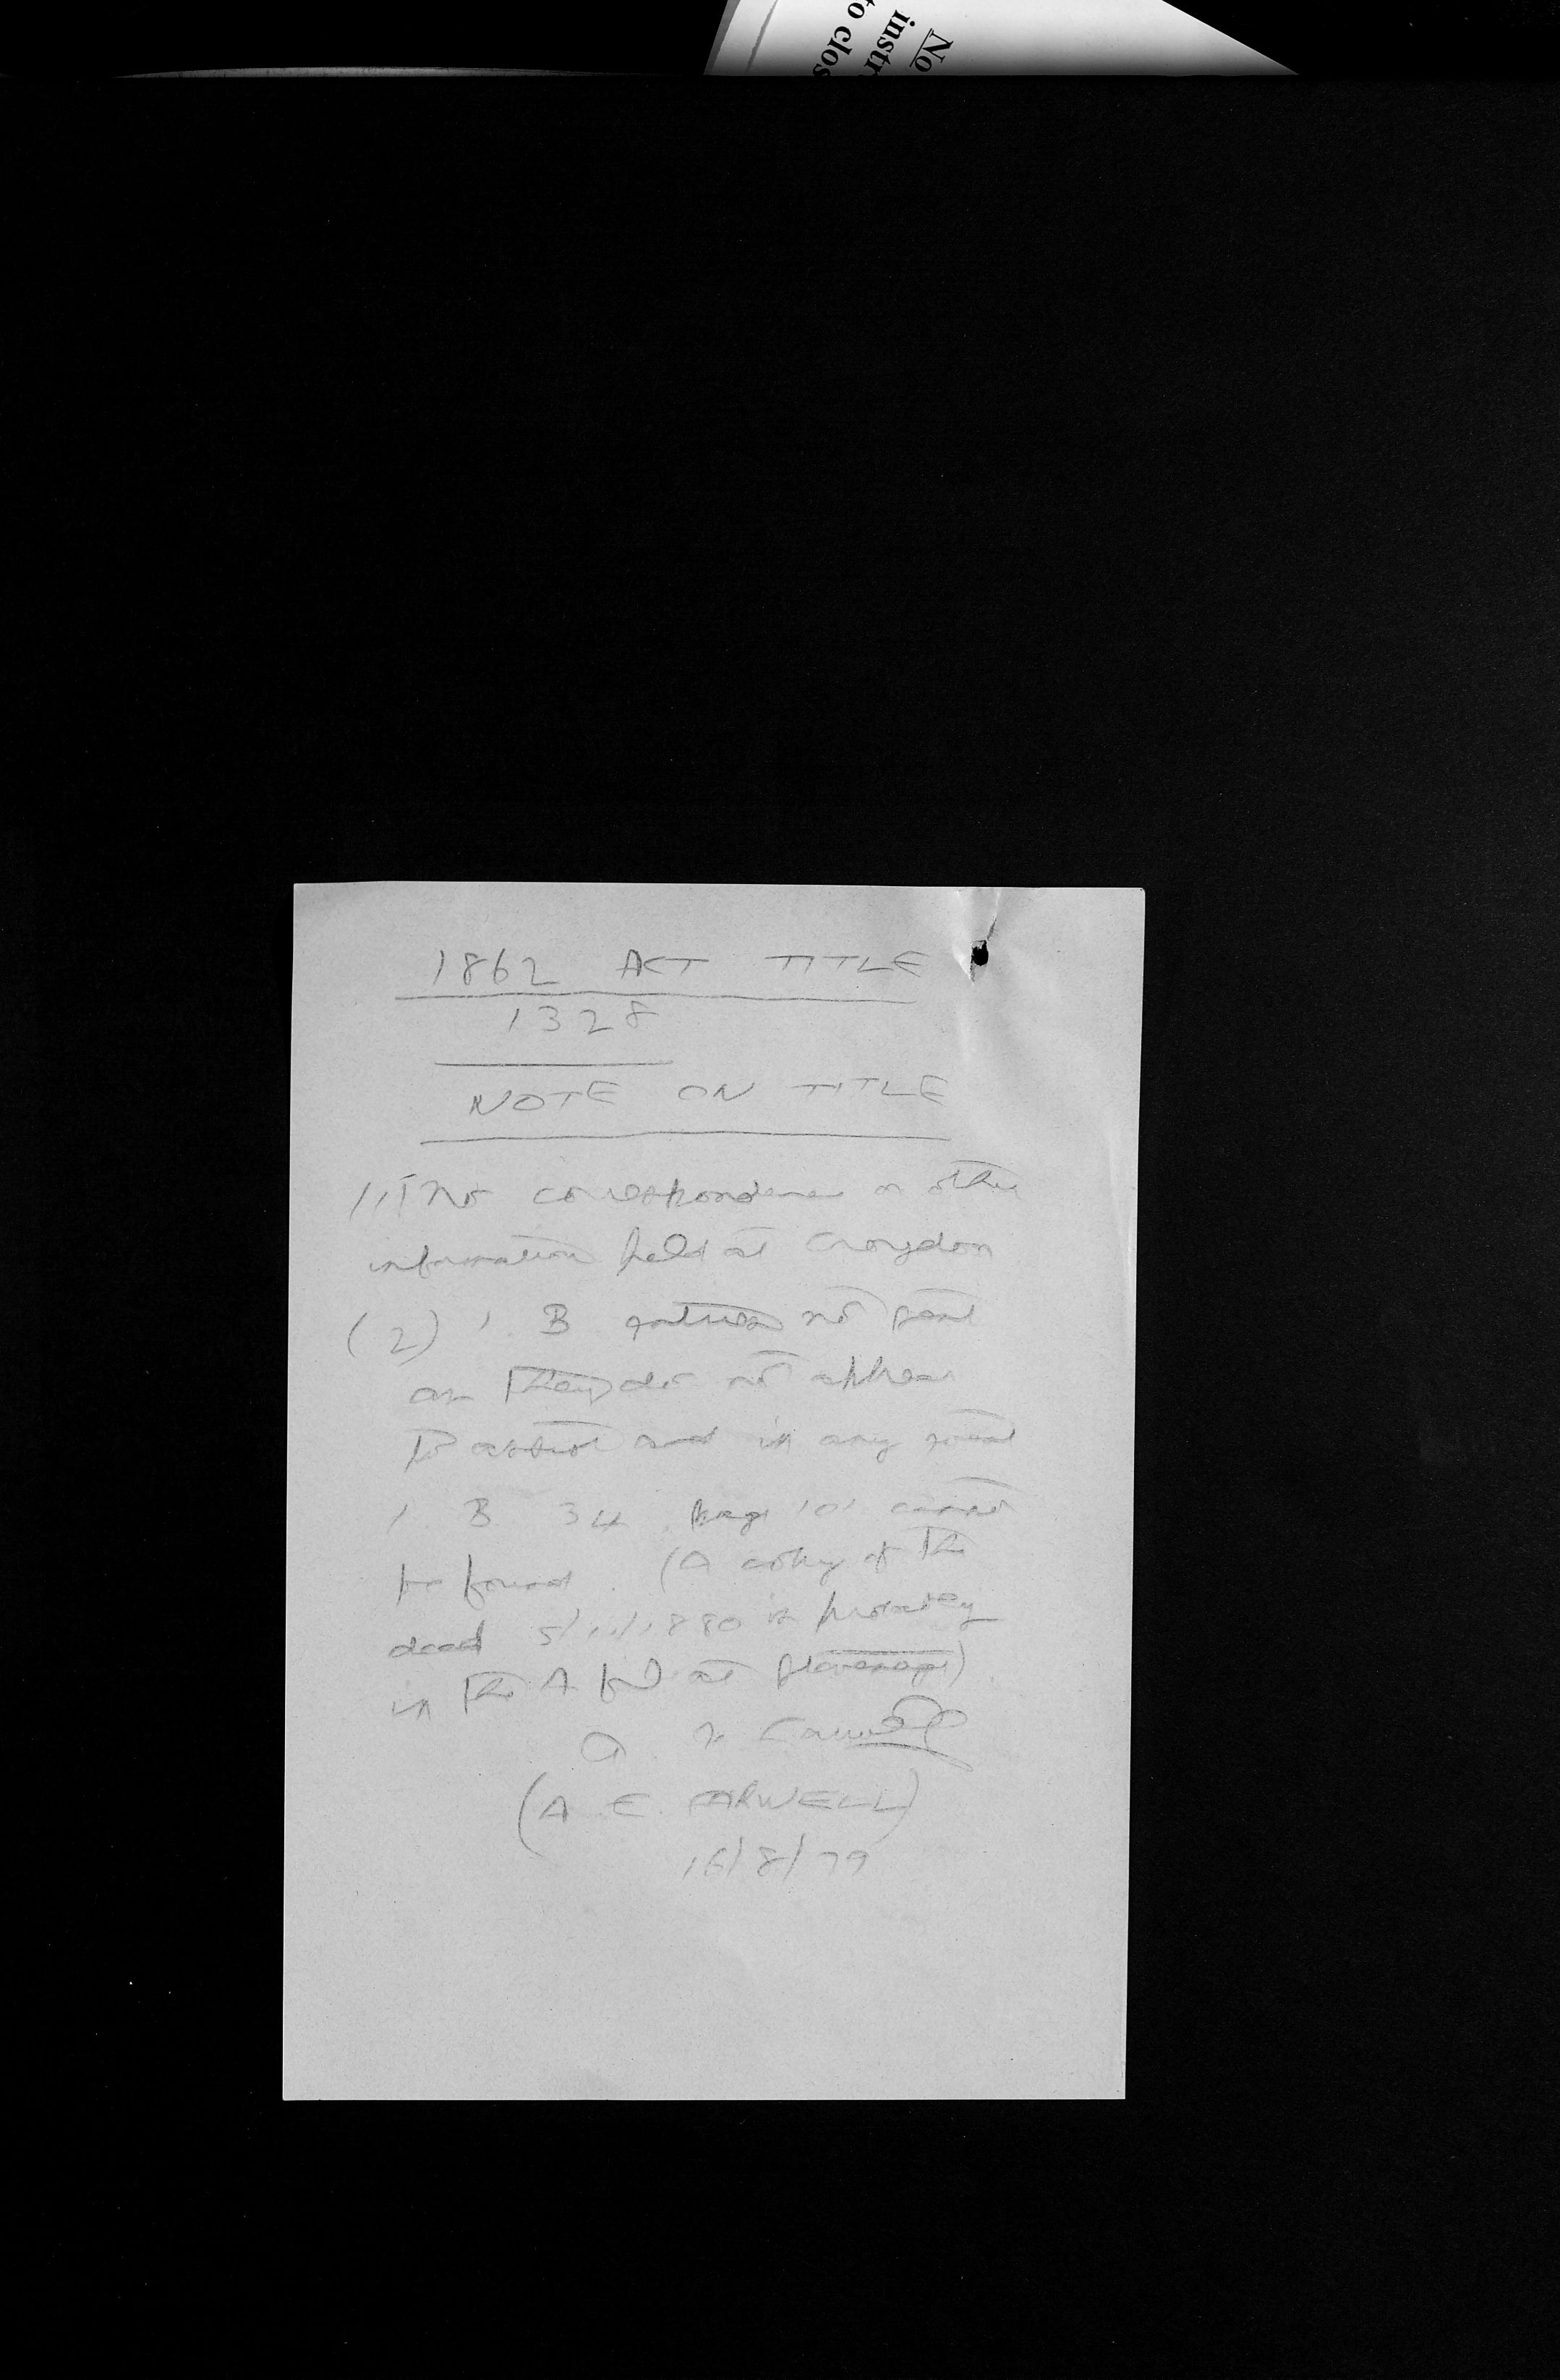 No
instr
to clos
1862 ACT TITLE
1328
NOTE ON TITLE
(1) No correspondence or other
information held at Croydon
(2) 1 B entries not sent
as they do not appear
to assist and in any event
1 B 34 page 101 cannot
be found. (A copy of the
deed 5/11/1880 is probably
in the A fd at Stevenage)
A E
(A E CARWELL)
16/8/79